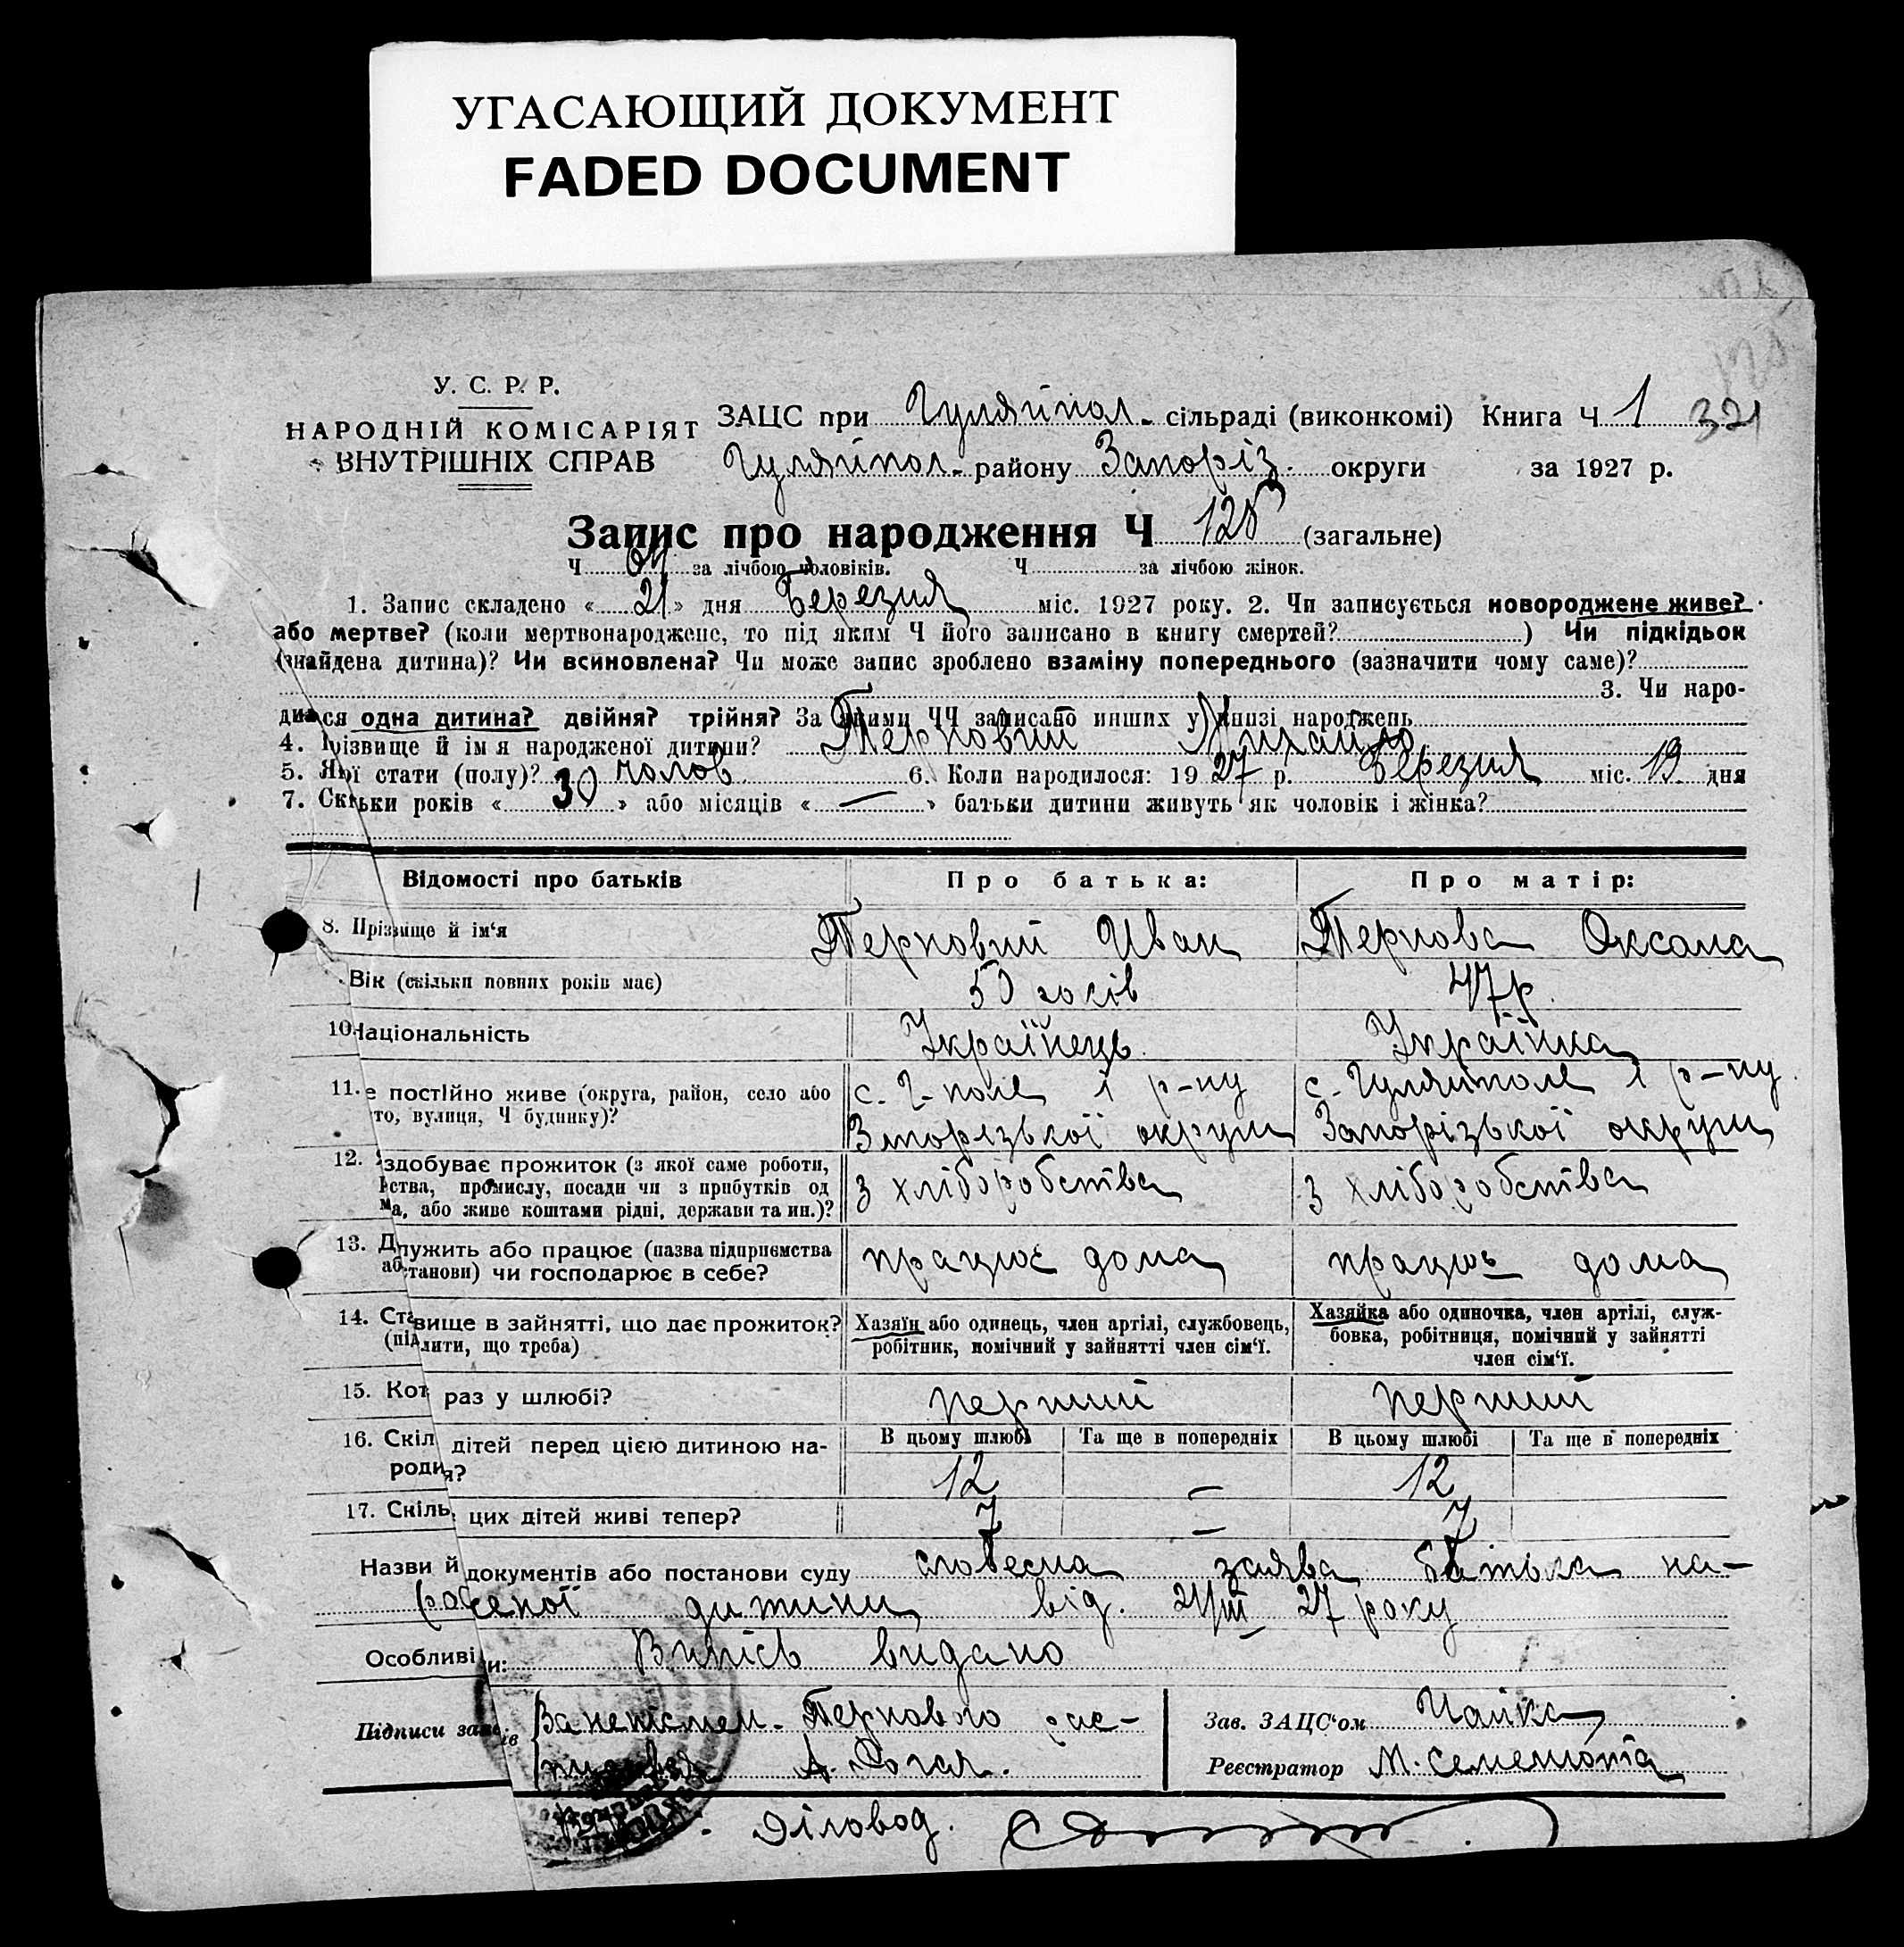 УГАСАЮЩИЙ ДОКУМЕНТ
FADED DOCUMENT
У. С. Р. Р.
НАРОДНІЙ КОМІСАРІЯТ
ВНУТРІШНІХ СПРАВ
ЗАЦС при Гуляйпол. сільраді (виконкомі) Книга Ч 1 321
Гуляйпол. району Запоріз. округи за 1927 р.
Запис про народження Ч 125 (загальне)
Ч за лічбою чоловіків. Ч за лічбою жінок.
1. Запис складено « 21 » дня Березня міс. 1927 року. 2. Чи записується новороджене живе?
або мертве? (коли мертвонароджене, то під яким Ч його записано в книгу смертей? ) Чи підкідьок
(знайдена дитина)? Чи всиновлена? Чи може запис зроблено взаміну попереднього (зазначити чому саме)?
3. Чи наро-
дився одна дитина? двійня? трійня? За якими ЧЧ записано инших у книзі народжень
4. Прізвище й ім я народженої дитини? Терновий Михайло
5. Якої стати (полу)? чолов 6. Коли народилося: 1927 р. Березня міс. 19 дня
7. Скільки років « 30 » або місяців « — » батьки дитини живуть як чоловік і жінка?
Відомості про батьків Про батька: Про матір:
8. Прізвище й ім‘я Терновий Иван Тернова Оксана
Вік (скільки повних років має) 50 років 47 р.
10. Національність Українець Українка
11. е постійно живе (округа, район, село або с. Г-поле 1 р-ну с. Гуляйполе 1 р-ну
то, вулиця, Ч будинку)? Запорізької округи Запорізької округи
12. здобуває прожиток (з якої саме роботи,
ства, промислу, посади чи з прибутків од
ма, або живе коштами рідні, держави та ин.)? З хліборобства З хліборобства
13. Д лужить або працює (назва підприємства
аб станови) чи господарює в себе? працює дома працює дома
14. Ста вище в зайнятті, що дає прожиток?
(під лити, що треба)
Хазяїн або одинець, член артілі, службовець,
робітник, помічний у зайнятті член сім‘ї.
Хазяйка або одиночка, член артілі, служ-
бовка, робітниця, помічний у зайнятті
член сім‘ї.
15. Кот раз у шлюбі? перший перший
16. Скіл дітей перед цією дитиною на-
роди я?
В цьому шлюбі Та ще в попередніх В цьому шлюбі Та ще в попередніх
12 — 12
17. Скіль цих дітей живі тепер? 7 — 7
Назви й документів або постанови суду словесна заява батька на-
роженої дитини від. 21/III 27 року
Особливі и: Випісь видано
Підписи заяв ів За неписмен. Терновго рас-
А. Рогач.
Зав. ЗАЦС‘ом Чайка
Реєстратор М. Семенюта
Діловод.